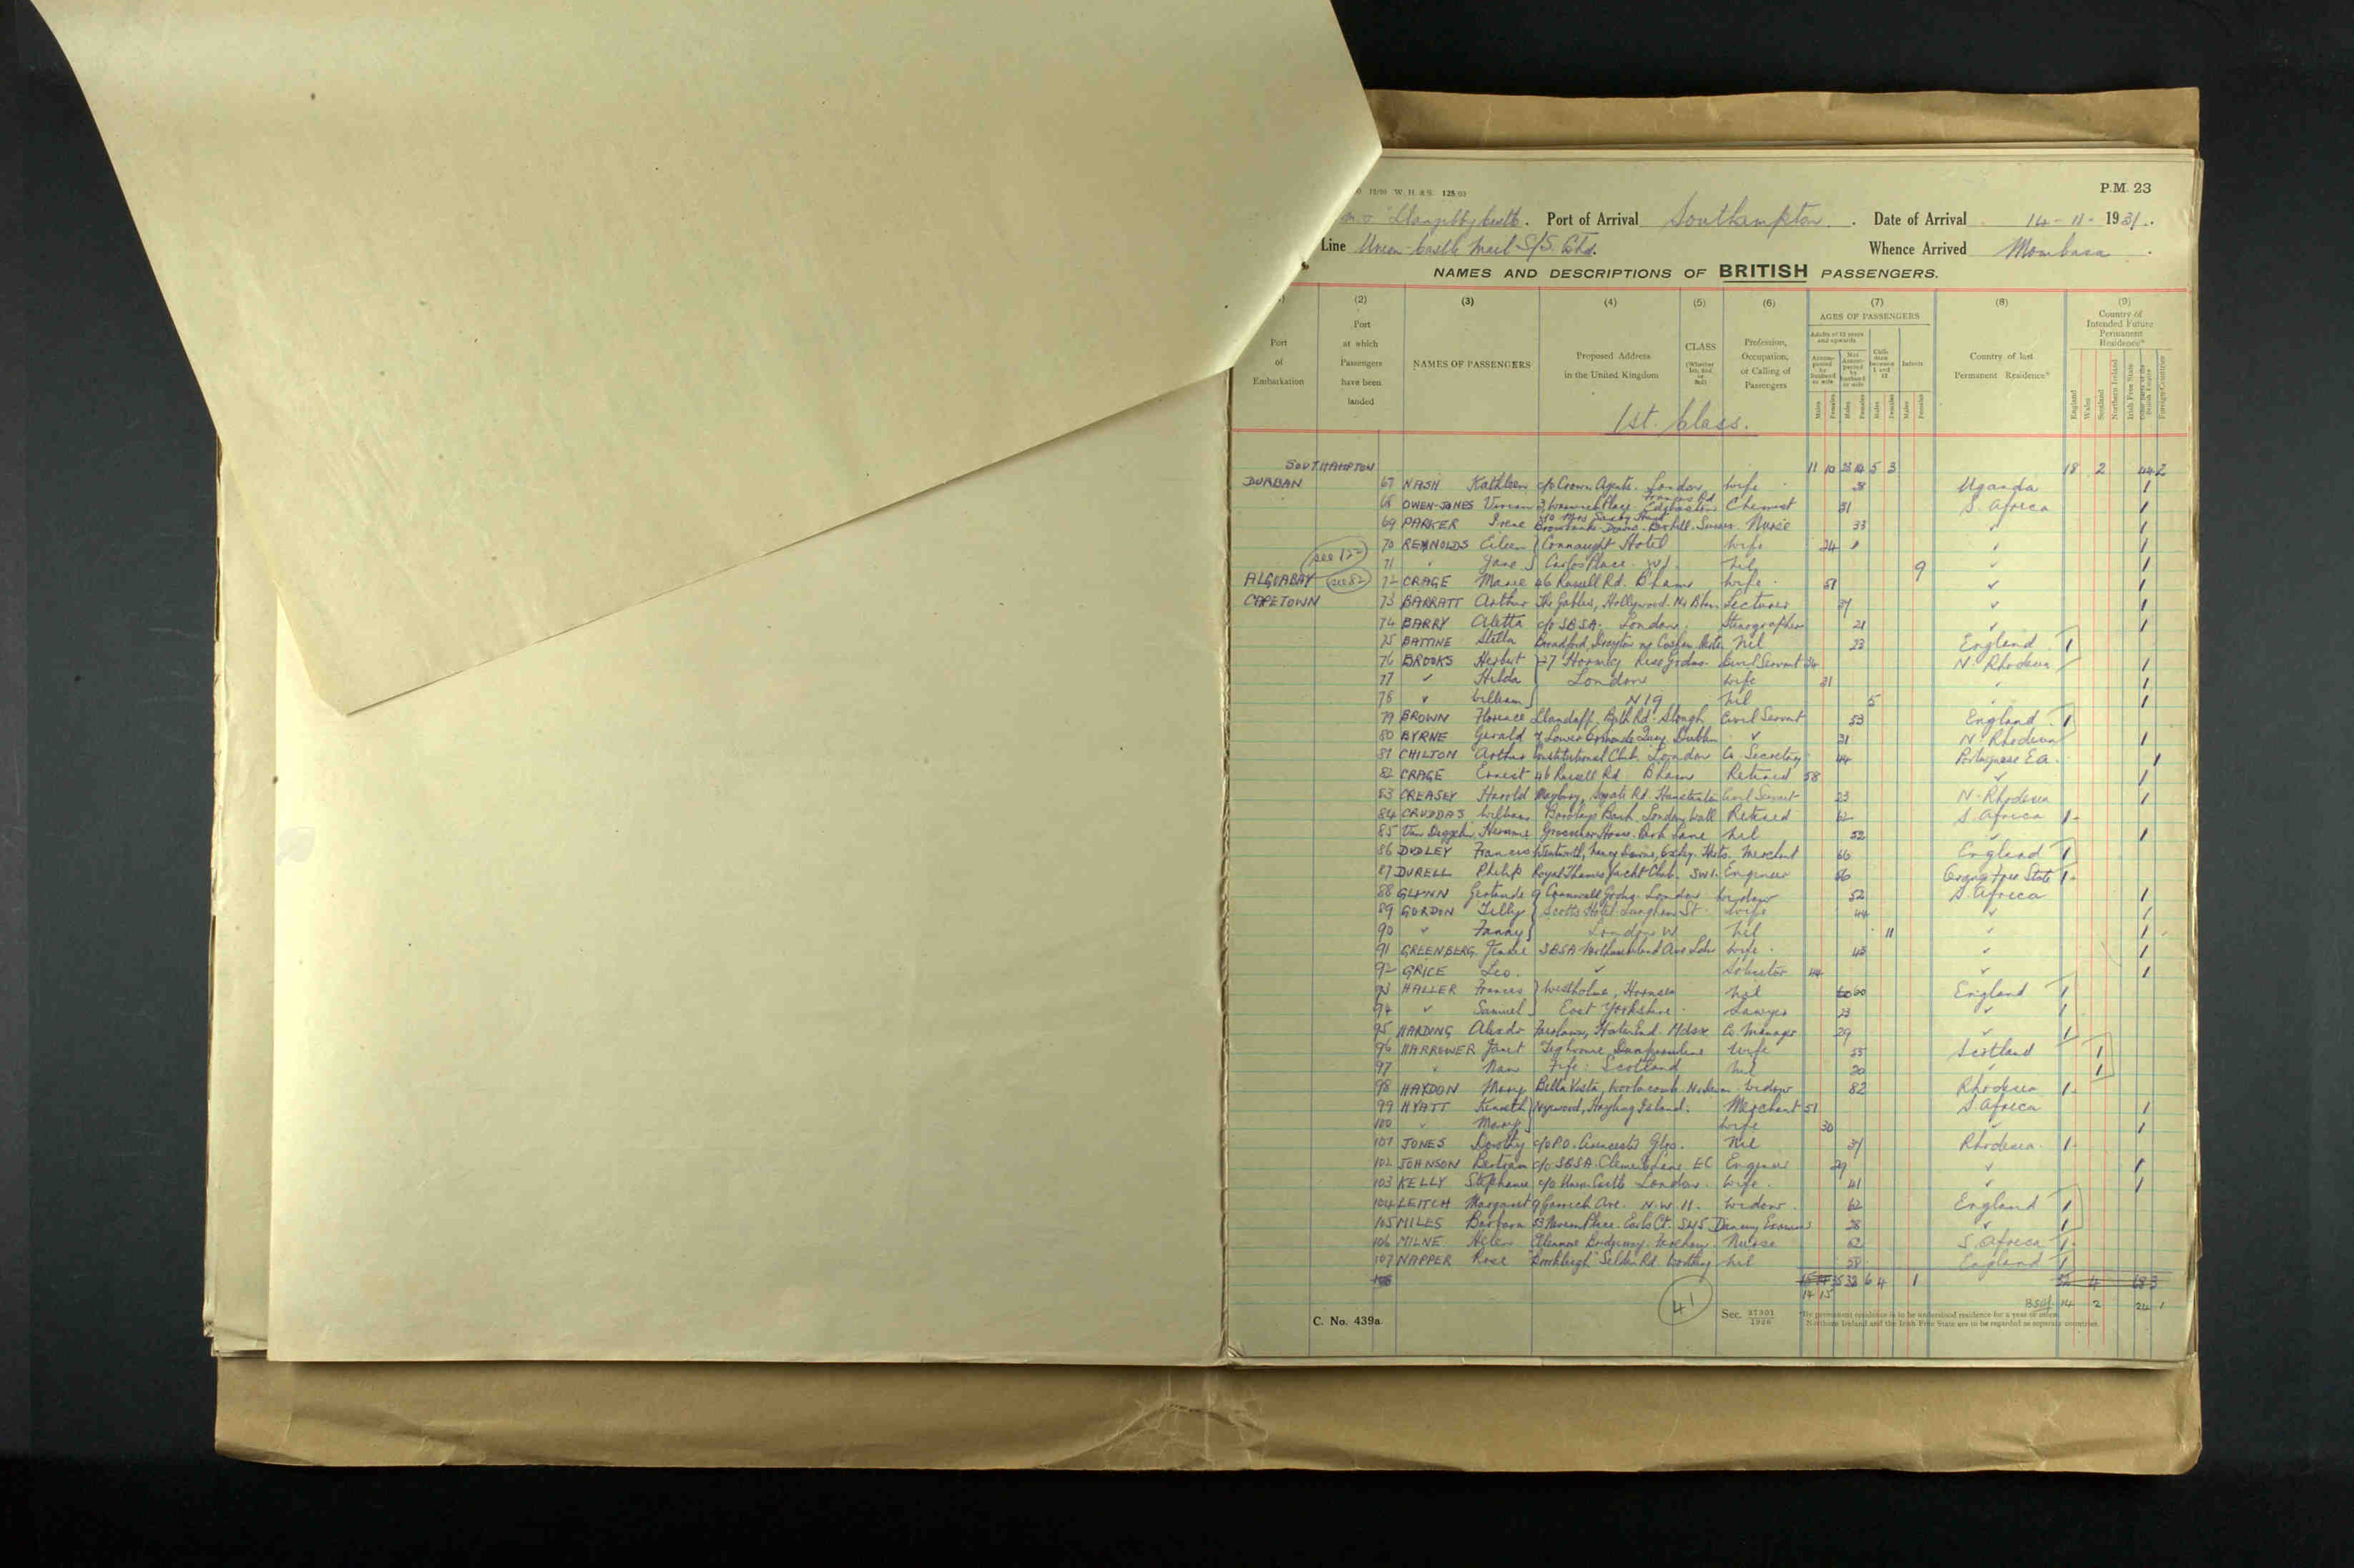 12/30 W. H. & S. 125/03
P.M. 23
m.v. "Llangibby Castle". Port of Arrival Southampton. Date of Arrival 14-11-1931.
Line Union-Castle Mail S/S. Co. Ltd. Whence Arrived Mombasa.
NAMES AND DESCRIPTIONS OF BRITISH PASSENGERS.
(2) (3) (4) (5) (6) (7) (8) (9)
Port of Embarkation
Port at which Passengers have been landed
NAMES OF PASSENGERS
Proposed Address in the United Kingdom
CLASS (Whether 1st, 2nd or 3rd)
Profession, Occupation, or Calling of Passengers
AGES OF PASSENGERS
Adults of 12 years and upwards
Accompanied by husband or wife
Not Accompanied by husband or wife
Children between 1 and 12
Infants
Males Females Males Females Males Females Males Females
Country of last Permanent Residence*
Country of Intended Future Permanent Residence*
England Wales Scotland Northern Ireland Irish Free State Other parts of the British Empire Foreign Countries
1st. Class.
SOUTHAMPTON 11 10 5 3 18 2 44 2
DURBAN 67 NASH Kathleen c/o Crown Agents. London wife 38 Uganda 1
68 OWEN-JONES Vivian 3, Place Francis Rd Edgbaston Chemist 31 S. Africa 1
69 PARKER Irene c/o Mrs Bexhill. Sussex. Nurse 33 ✓ 1
70 REYNOLDS Eileen } Connaught Hotel wife 24 ✓ 1
see 122 71 " Jane } Carlos Place. W1. Nil 9 ✓ 1
ALGOABAY see 82 72 CRAGE Marie 46 Russell Rd. B'ham wife 51 ✓ 1
CAPETOWN 73 BARRATT Arthur The Gables, Hollywood. Nr Bham Lecturer 37 ✓ 1
74 BARRY Aletta c/o SBSA. London. Stenographer 21 ✓ 1
75 BATTINE Stella Drayton nr Cosham Nil 23 England 1
76 BROOKS Herbert } 27 Hornsey Rise Gdns. Civil Servant 34 N. Rhodesia 1
77 ✓ Hilda } London wife 31 ✓ 1
78 ✓ William } N19 Nil 5 1
79 BROWN Florence Llandaff. Bath Rd. Slough Civil Servant 53 England 1
80 BYRNE Gerald 7 Lower Ormonde Quay Dublin ✓ 31 N. Rhodesia 1
81 CHILTON Arthur Constitutional Club. London Co. Secretary 44 Portuguese E.A. 1
82 CRAGE Ernest 46 Russell Rd B'ham Retired 58 ✓ 1
83 CREASEY Harold Hunstanton Civil Servant 23 N. Rhodesia 1
84 CRUDDAS William Barclays Bank, London Wall Retired 62 S. Africa 1
85 Van Grosvenor House. Park Lane Nil 52 ✓ 1
86 DUDLEY Francis Wentworth, Oxhey. Herts. Merchant 66 England 1
87 DURELL Philip Royal Thames Yacht Club. SW1. Engineer 56 Orange Free State 1
88 GLYNN Gertrude 9 Cornwall Gdns. London widow 52 S. Africa 1
89 GORDON Tilly } Scotts Hotel Langham St. wife 44 ✓ 1
90 ✓ Fanny } London W Nil 11 ✓ 1
91 GREENBERG Jennie SBSA Northumberland Ave Ldn wife 43 ✓ 1
92 GRICE Leo. ✓ Solicitor 44 ✓ 1
93 HALLER Frances } Westholme, Hornsea Nil 60 England 1
94 ✓ Samuel } East Yorkshire. Lawyer 23 ✓ 1
95 HARDING Hatch End. Mdsx Co. Manager 29 ✓ 1
96 HARROWER Janet Dunfermline wife 55 Scotland 1
97 " Nan Fife. Scotland Nil 20 1
98 HAYDON Mary Bella Vista, widow 82 Rhodesia 1
99 HYATT Kenneth } Hayling Island. Merchant 51 S. Africa 1
100 ✓ Mary } wife 30 1
101 JONES Dorothy c/o P.O. Cirencester Glos. Nil 37 Rhodesia 1
102 JOHNSON Bertram c/o SBSA Clements Lane EC Engineer 29 ✓ 1
103 KELLY Stephanie c/o Union Castle London. wife. 41 ✓ 1
104 LEITCH Margaret 9 Garrick Ave. N.W.11. widow 62 England 1
105 MILES Barbara 53 Nevern Place. Earls Ct. SW5 28 ✓ 1
106 MILNE Nurse 52 S. Africa 1
107 NAPPER Rose "Brookleigh" Selden Rd. Worthing Nil 58 England 1
108 35 38 6 4 1
14 15
14 2 24 1
41
C. No. 439a.
Sec. 27301/1926
*By permanent residence is to be understood residence for a year or more.
Northern Ireland and the Irish Free State are to be regarded as separate countries.